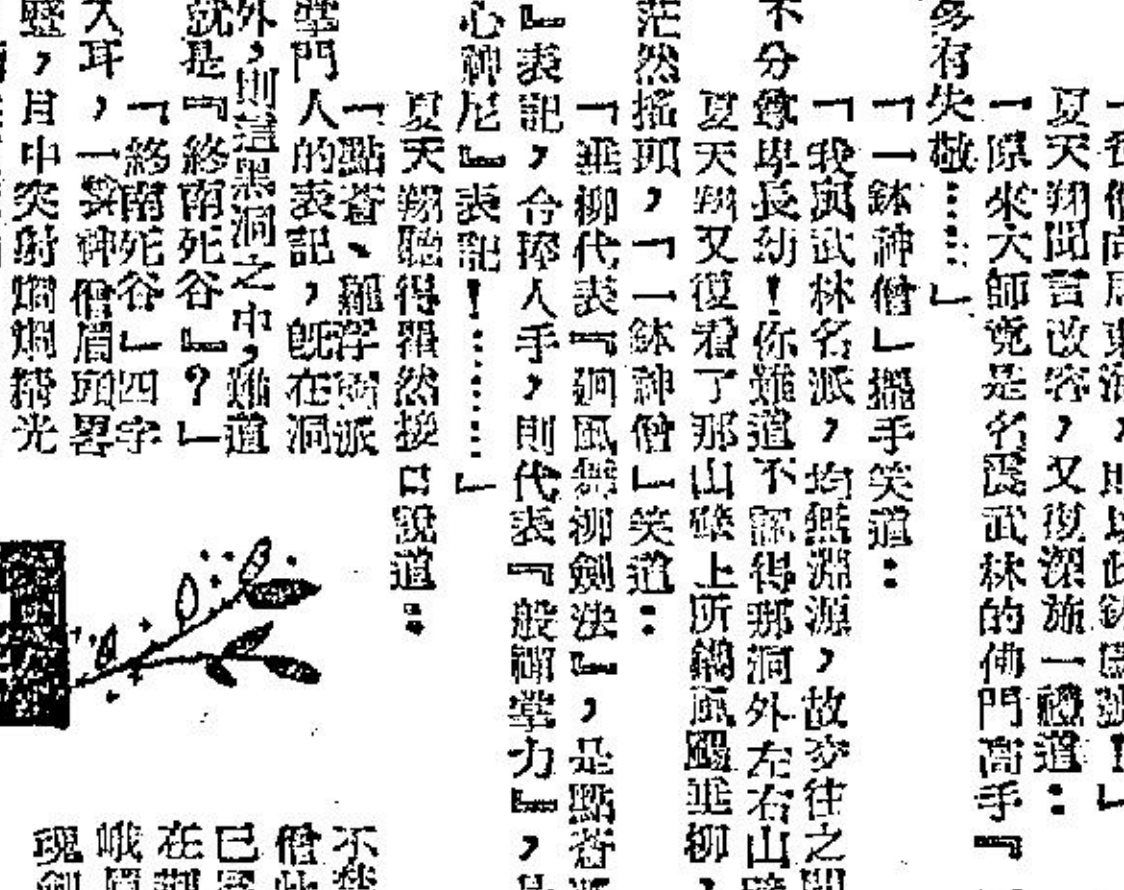 夏天翔聞言改容，又復深施一禮道：
「原來大師竟是名震武林的佛門高手『
多有失敬……」
「一鉢神僧」搖手笑道：
「我與武林名派，均無淵源，故交往之間
不分尊卑長幼！你難道不記得那洞外左右山壁
夏天翔又復看了那山壁上所鐫風颺垂柳，
茫然搖頭，「一鉢神僧」笑道：
「垂柳代表『迴風舞柳劍法』，是點蒼派
』表記，合捧人手，則代表『般禪掌力』，
心神尼』表記！………」
夏天翔聽得瞿然接口說道：
「點蒼、羅浮兩派
掌門人的表記，既在洞
外，則這黑洞之中，難道
就是『終南死谷』？」
「終南死谷」四字
入耳，一鉢神僧眉頭畧
，目中突射烱烱精光
不
僧
已
在
峨眉
魂劍